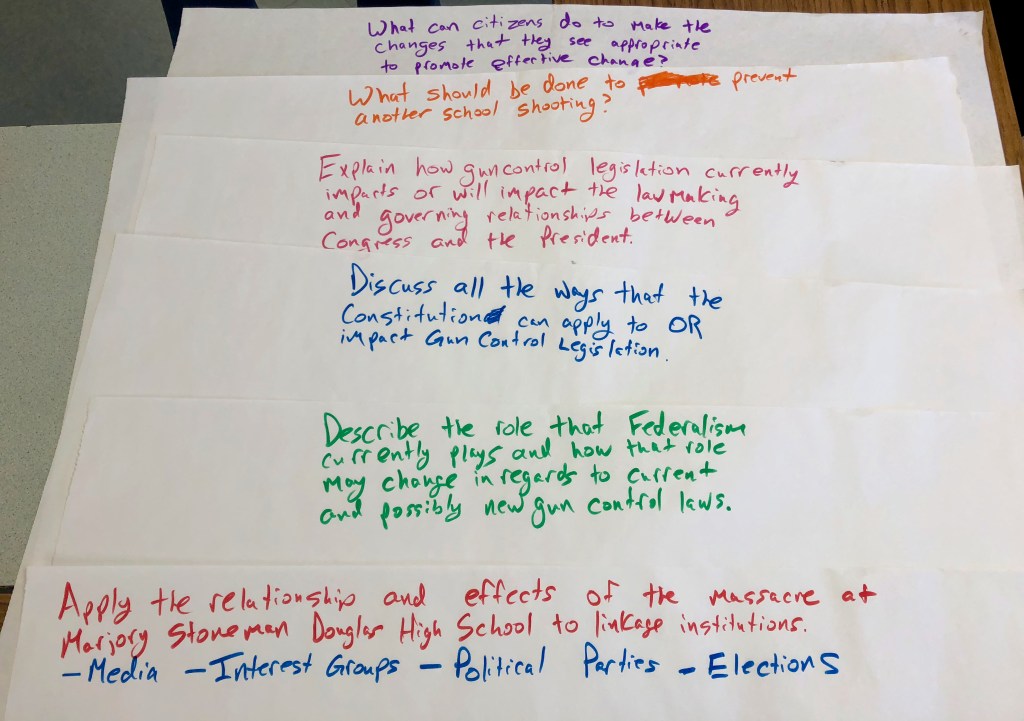 What can citizens do to make the
changes that they see appropriate
to promote effective change?
What should be done to prevent
another school shooting?
Explain how gun control legislation currently
impacts or will impact the lawmaking
and governing relationships between
Congress and the President.
Discuss all the ways that the
Constitution can apply to OR
impact Gun Control Legislation.
Describe the role that Federalism
currently plays and how that role
may change in regards to current
and possibly new gun control laws.
Apply the relationship and effects of the massacre at
Marjory Stoneman Douglas High School to linkage institutions.
- Media - Interest Groups - Political Parties - Elections